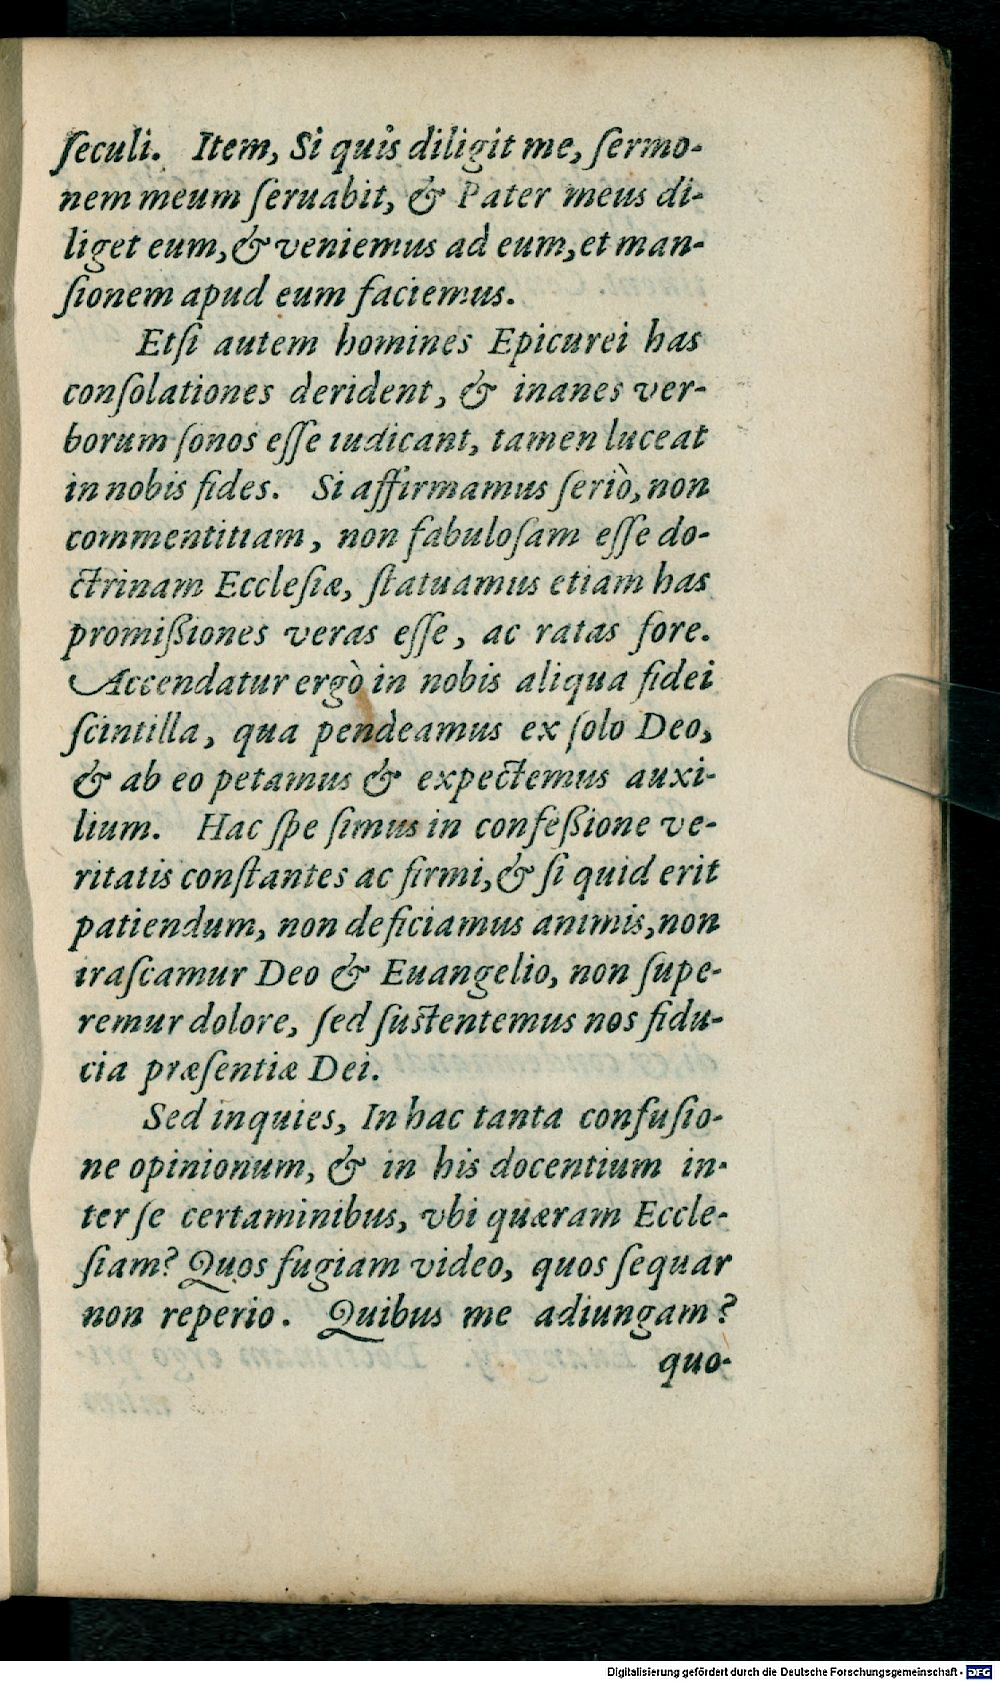 ſeculi. Item, Si quis diligit me, ſermo-
nem meum ſeruabit, & Pater meus di-
liget eum, & veniemus ad eum, et man-
ſionem apud eum faciemus.
Etſi autem homines Epicurei has
conſolationes derident, & inanes ver-
borum ſonos eſſe iudicant, tamen luceat
in nobis fides. Si affirmamus ſeriò, non
commentitiam, non fabuloſam eſſe do-
ctrinam Eccleſiæ, ſtatuamus etiam has
promißiones veras eſſe, ac ratas fore.
Accendatur ergò in nobis aliqua fidei
ſcintilla, qua pendeamus ex ſolo Deo,
& ab eo petamus & expectemus auxi-
lium. Hac ſpe ſimus in confeßione ve-
ritatis conſtantes ac firmi, & ſi quid erit
patiendum, non deficiamus animis, non
iraſcamur Deo & Euangelio, non ſupe-
remur dolore, ſed ſustentemus nos fidu-
cia præſentiæ Dei.
Sed inquies, In hac tanta confuſio-
ne opinionum, & in his docentium in-
ter ſe certaminibus, vbi quæram Eccle-
ſiam? Quos fugiam video, quos ſequar
non reperio. Quibus me adiungam?
quo-
Digitalisierung gefördert durch die Deutsche Forschungsgemeinschaft - DFG